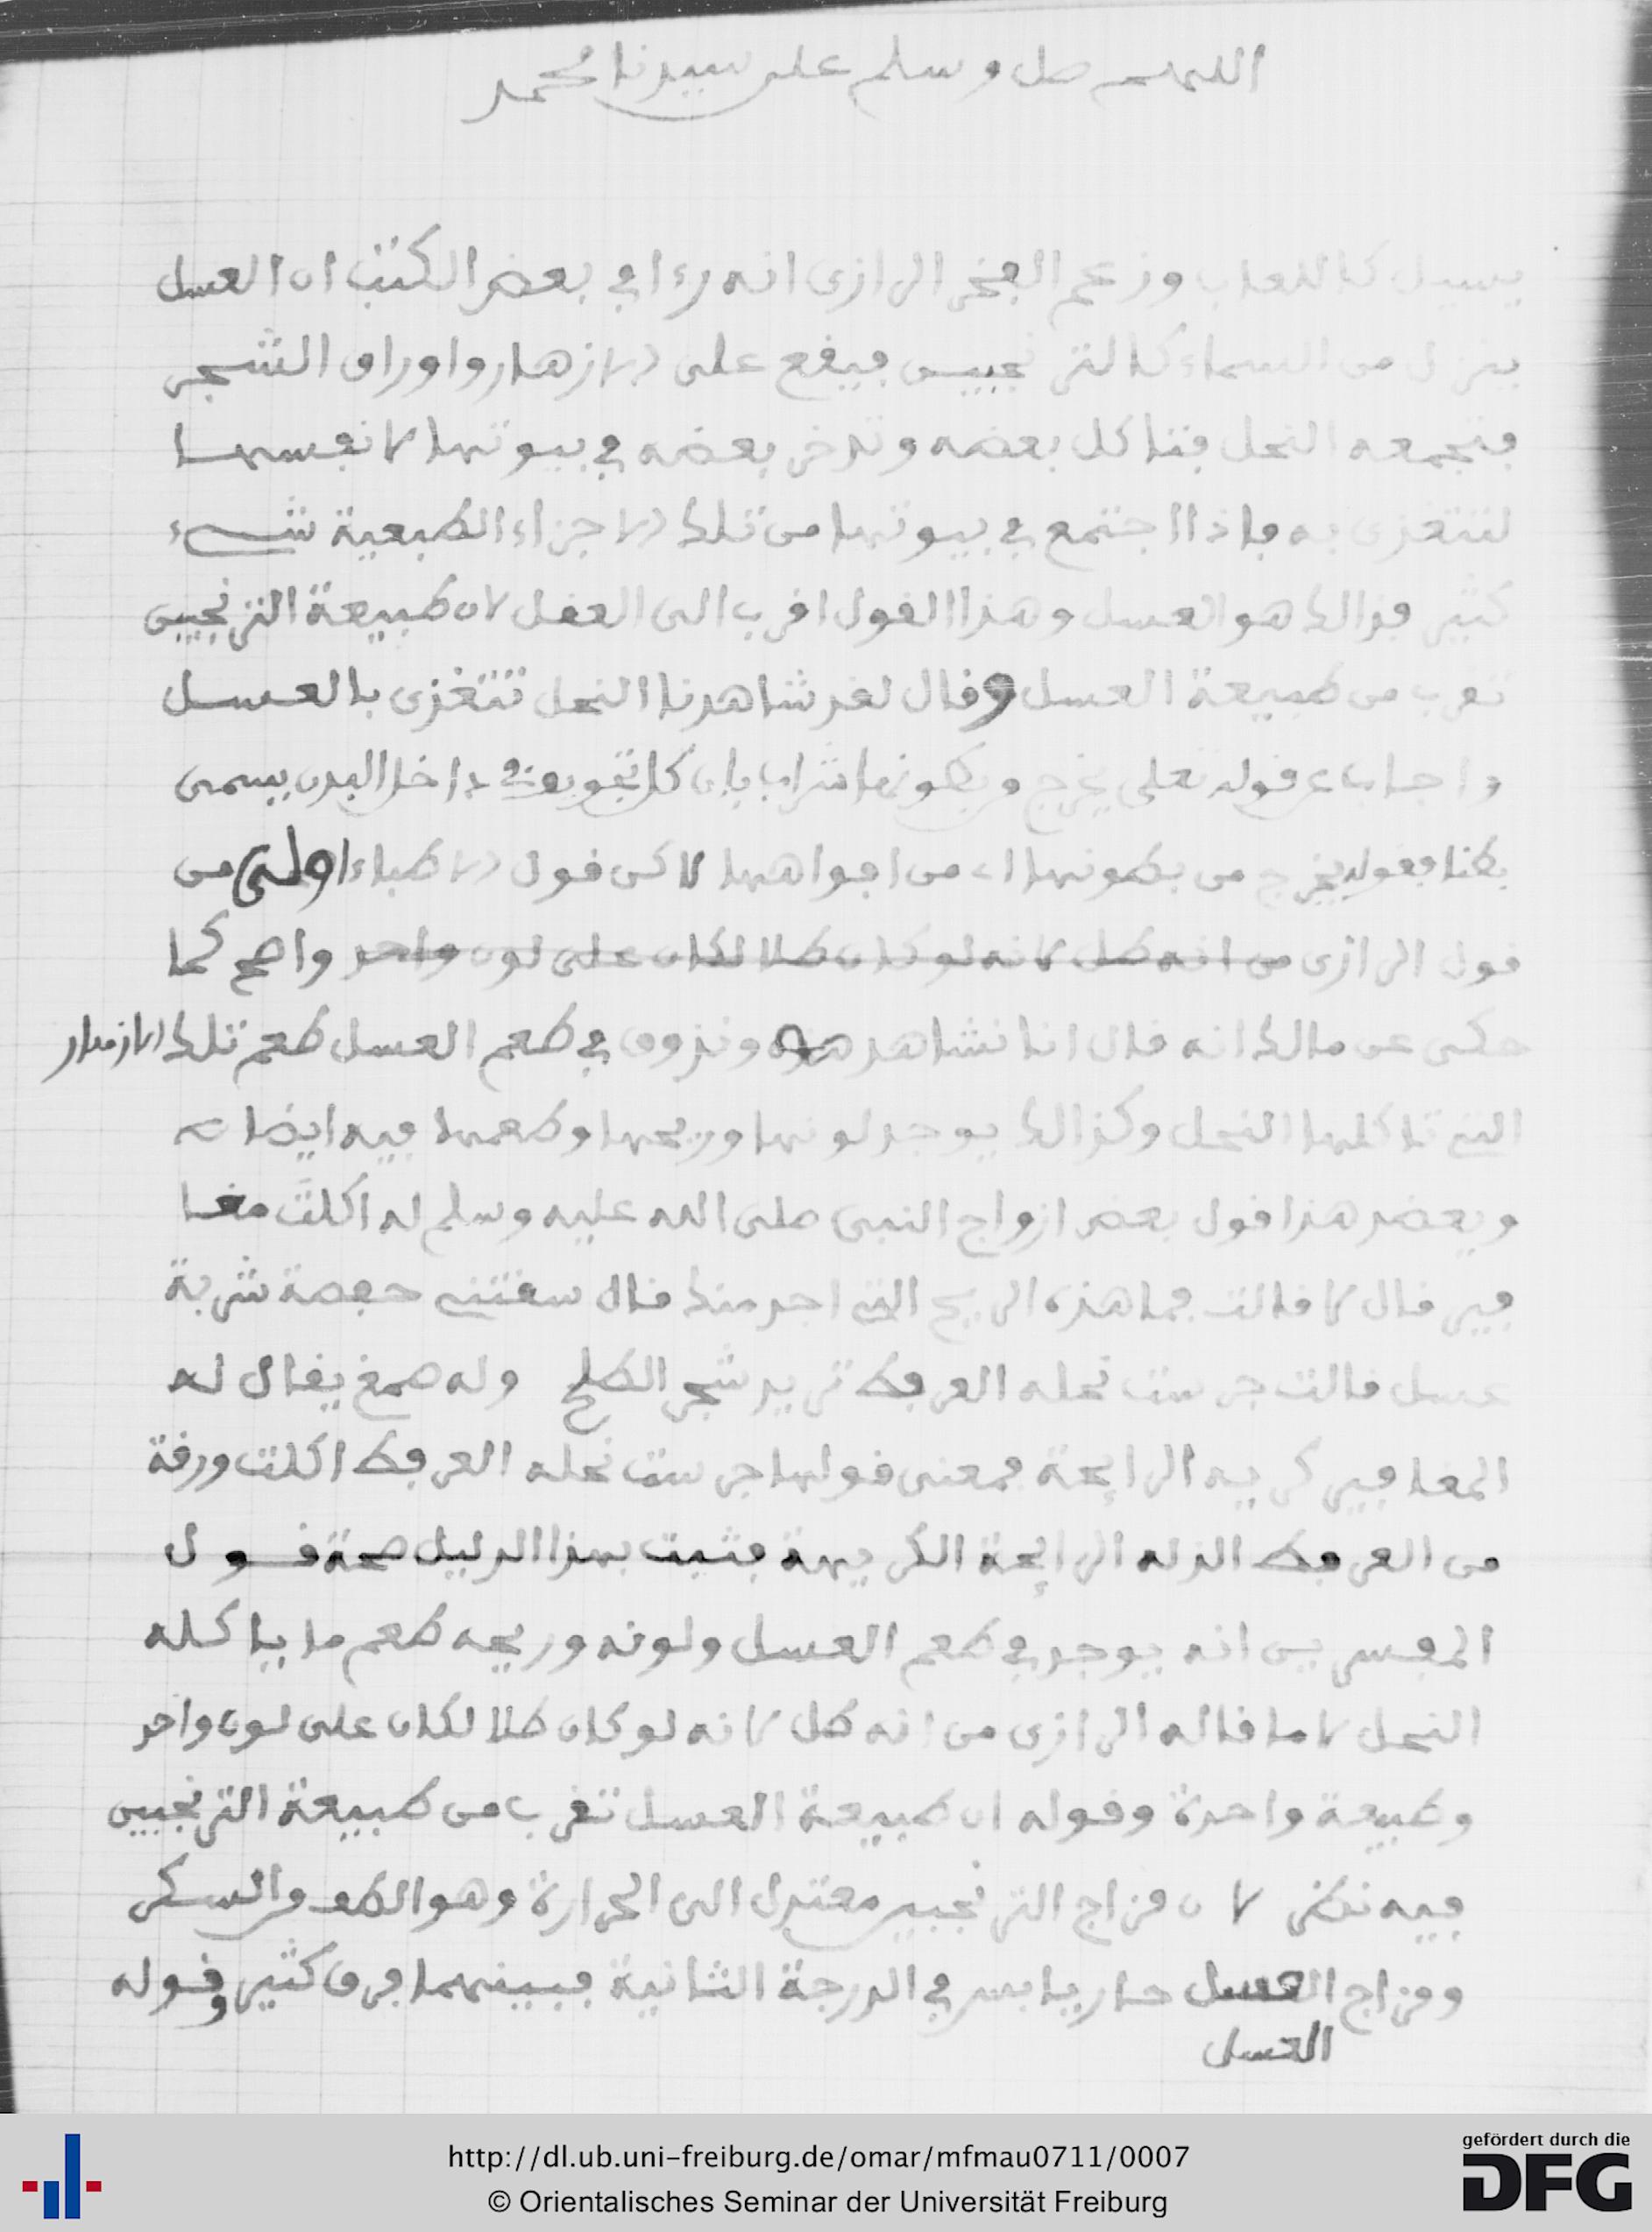 اللهم صل وسلم على سيدنا محمد
يسيل كاللعاب وزعم الفخر الرازى انه رءا في بعض الكتب ان العسل
ينزل من السماء كالترنجبين فيقع على الازهار واوراق الشجر
فتجمعه النحل فتاكل بعضه وتدخر بعضه في بيوتها لانفسها
لتتغذى به فاذا اجتمع في بيوتها من تلك الاجزاء الطبعية شيء
كثير فذالك هو العسل وهذا القول اقرب الى العقل لان طبيعة الترنجبين
تقرب من طبيعة العسل وقال لقد شاهدنا النحل تتغذى بالعسل
واجاب عن قوله تعلى يخرج من بطونها شراب بان كل تجويف في داخل البدن يسمى
بطنا فقوله يخرج من بطونها اي من افواهها لاكن قول الاطباء اولى من
قول الرازى من انه طل لانه لو كان طلا لكان على لون واحد واصح كما
حكى عن مالك انه قال انا نشاهد ونذوق في طعم العسل طعم تلك الازهار
التي تاكلها النحل وكذالك يوجد لونها وريحها وطعمها فيه ايضا
ويعضد هذا قول بعض ازواج النبى صلى الله عليه وسلم له اكلتَ مغا
فير قال لا قالت فما هذه الريح التي اجد منك قال سقتني حفصة شربة
عسل قالت جرست نحله العرفط تريد شجر الطلح وله صمغ يقال له
المغافير كريه الرايحة فمعنى قولها جرست نحله العرفط اكلت ورقة
من العرفط الذله الرايحة الكريهة فثبت بهذا الدليل صحة قول
المفسرين انه يوجد في طعم العسل ولونه وريحه طعم ما ياكله
النحل لا ما قاله الرازى من انه طل لانه لو كان طلا لكان على لون واحد
وطبيعة واحدة وقوله ان طبيعة العسل تقرب من طبيعة الترنجبين
فيه نظر لان مزاج الترنجبين معتدل الى الحرارة وهو الطف من السكر
ومزاج العسل حار يابس في الدرجة الثانية فبينهما فرق كثير وقوله
العسل
http://dl.ub.uni-freiburg.de/omar/mfmau0711/0007
© Orientalisches Seminar der Universität Freiburg
gefördert durch die
DFG